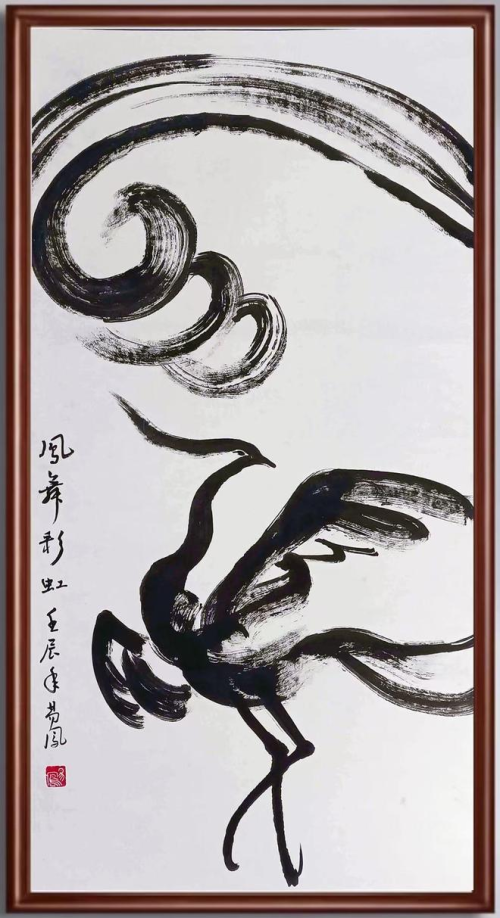 凤舞彩虹 壬辰年 易凤